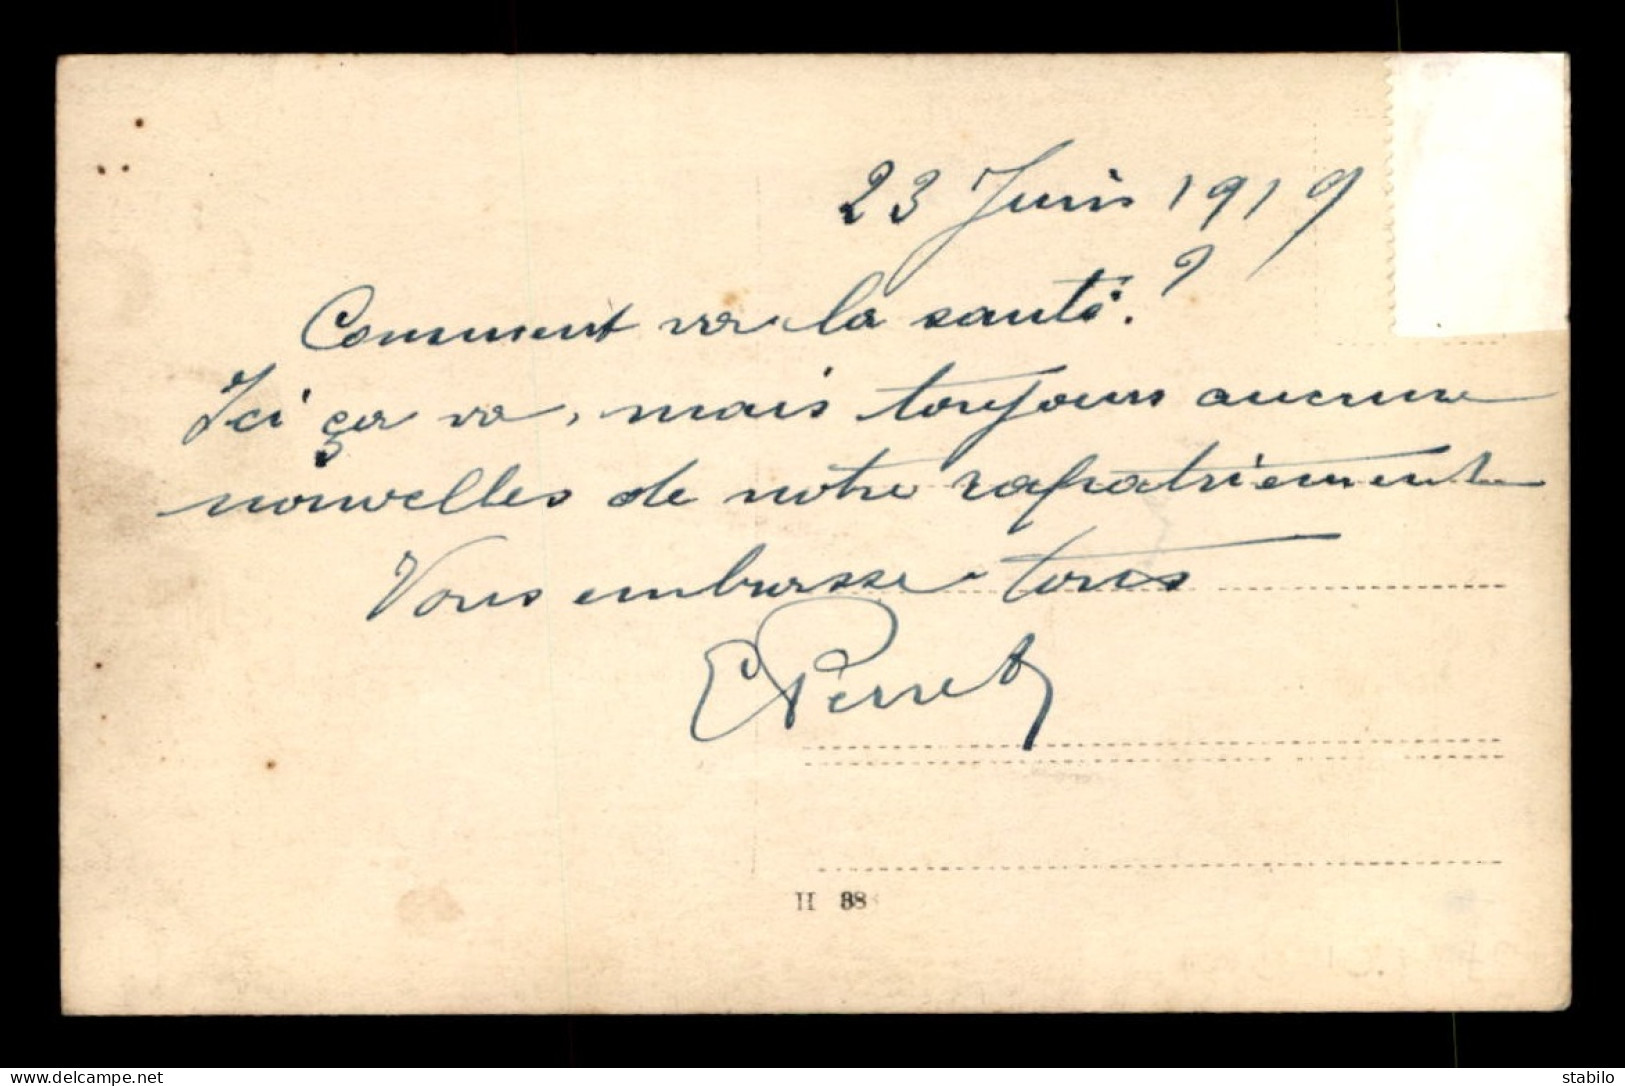 23 Juin 1919
Comment va la santé ?
Ici ça va, mais toujours aucune
nouvelles de notre rapatriement
Vous embrasse tous
E Perret
H 88
delcampe.net
stabilo